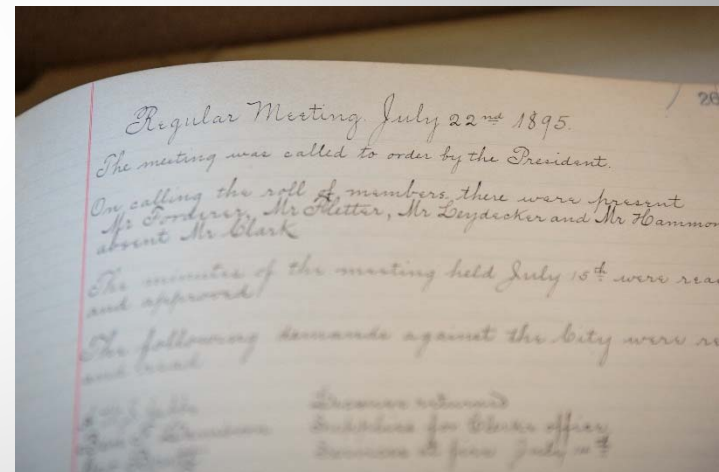 20
Regular Meeting. July 22nd 1895.
The meeting was called to order by the President.
On calling the roll of members, there were present
Mr Fonderer, Mr Fletter, Mr Leydecker and Mr Hammon
absent Mr Clark
The minutes of the meeting held July 15th were rea
and approved
The following demands against the City were re
and read
Licence returned
Supplies for Clerks office
Services at fire July